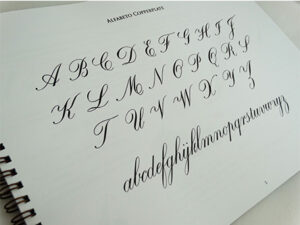 Alfabeto Copperplate
A B C D E F G H I J
K L M N O P Q R S
T U V W X Y Z
abcdefghijklmnopqrstuvwxyz